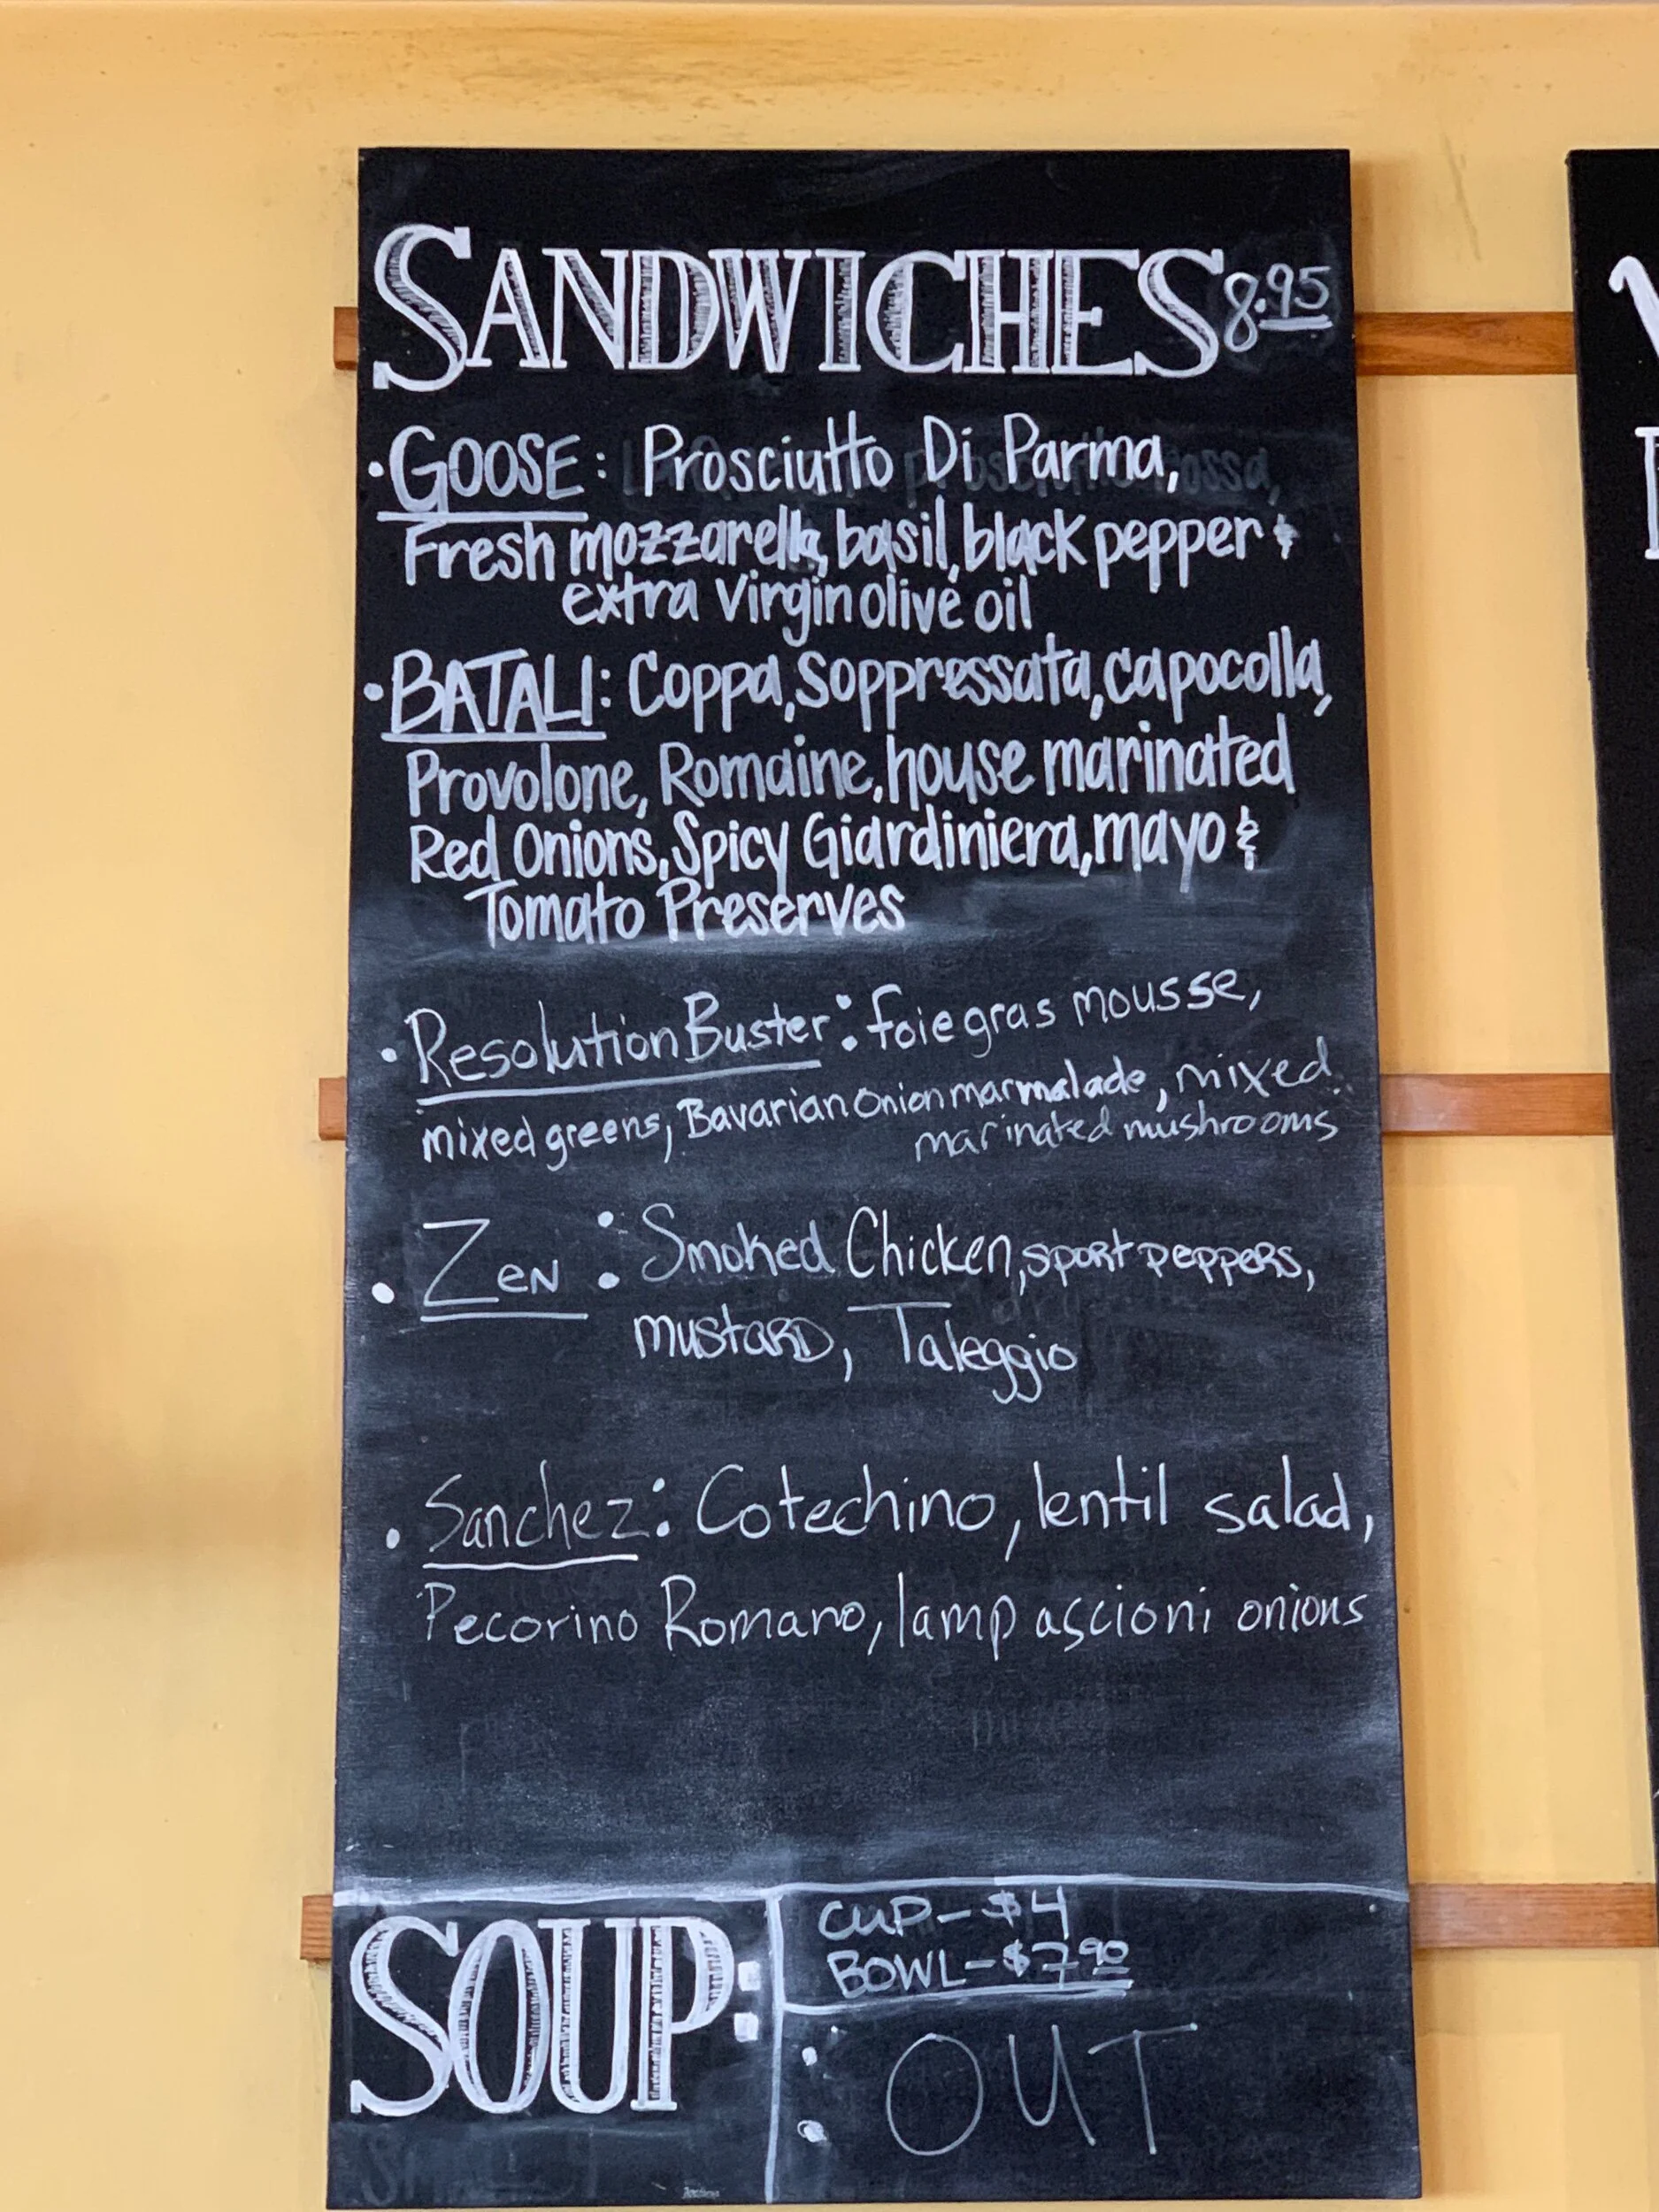 SANDWICHES 8.95
• GOOSE: Prosciutto Di Parma,
Fresh mozzarella, basil, black pepper &
extra Virgin olive oil
• BATALI: Coppa, Soppressata, capocolla,
Provolone, Romaine, house marinated
Red Onions, Spicy Giardiniera, mayo &
Tomato Preserves
• Resolution Buster: foie gras mousse,
mixed greens, Bavarian Onion marmalade, mixed
marinated mushrooms
• ZeN: Smoked Chicken, sport peppers,
mustard, Taleggio
• Sanchez: Cotechino, lentil salad,
Pecorino Romano, lampascioni onions
SOUP:
CUP - $4
BOWL - $7.90
OUT